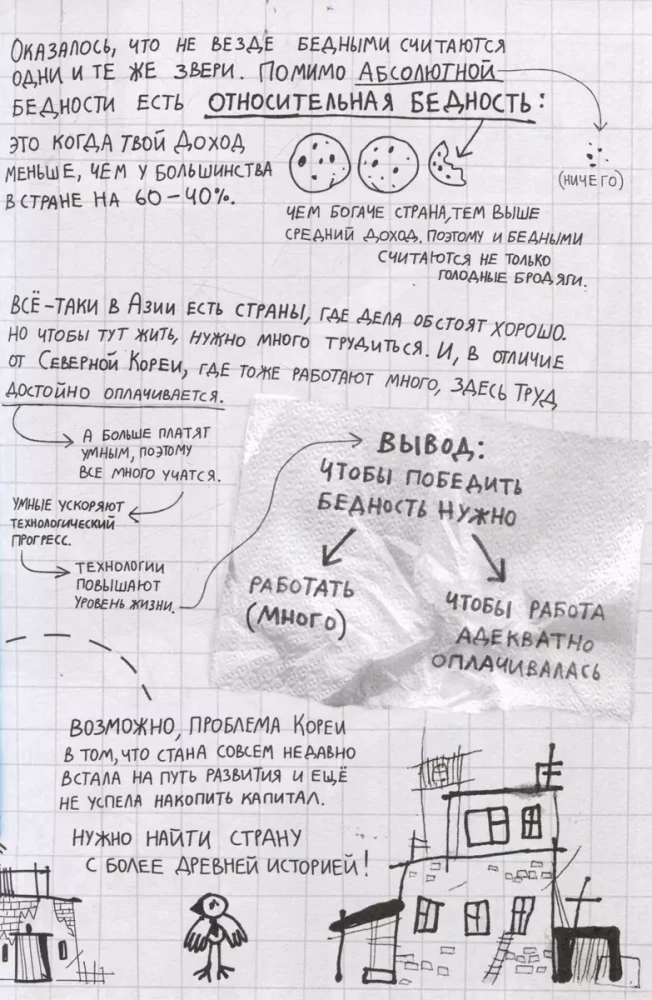 Оказалось, что не везде бедными считаются
одни и те же звери. Помимо абсолютной
бедности есть относительная бедность:
это когда твой доход
меньше, чем у большинства
в стране на 60–40%.
(ничего)
Чем богаче страна, тем выше
средний доход. Поэтому и бедными
считаются не только
голодные бродяги.
Всё-таки в Азии есть страны, где дела обстоят хорошо.
Но чтобы тут жить, нужно много трудиться. И, в отличие
от Северной Кореи, где тоже работают много, здесь труд
достойно оплачивается.
А больше платят
умным, поэтому
все много учатся.
Умные ускоряют
технологический
прогресс.
Технологии
повышают
уровень жизни.
Вывод:
чтобы победить
бедность нужно
работать
(много)
чтобы работа
адекватно
оплачивалась
Возможно, проблема Кореи
в том, что стана совсем недавно
встала на путь развития и ещё
не успела накопить капитал.
Нужно найти страну
с более древней историей!